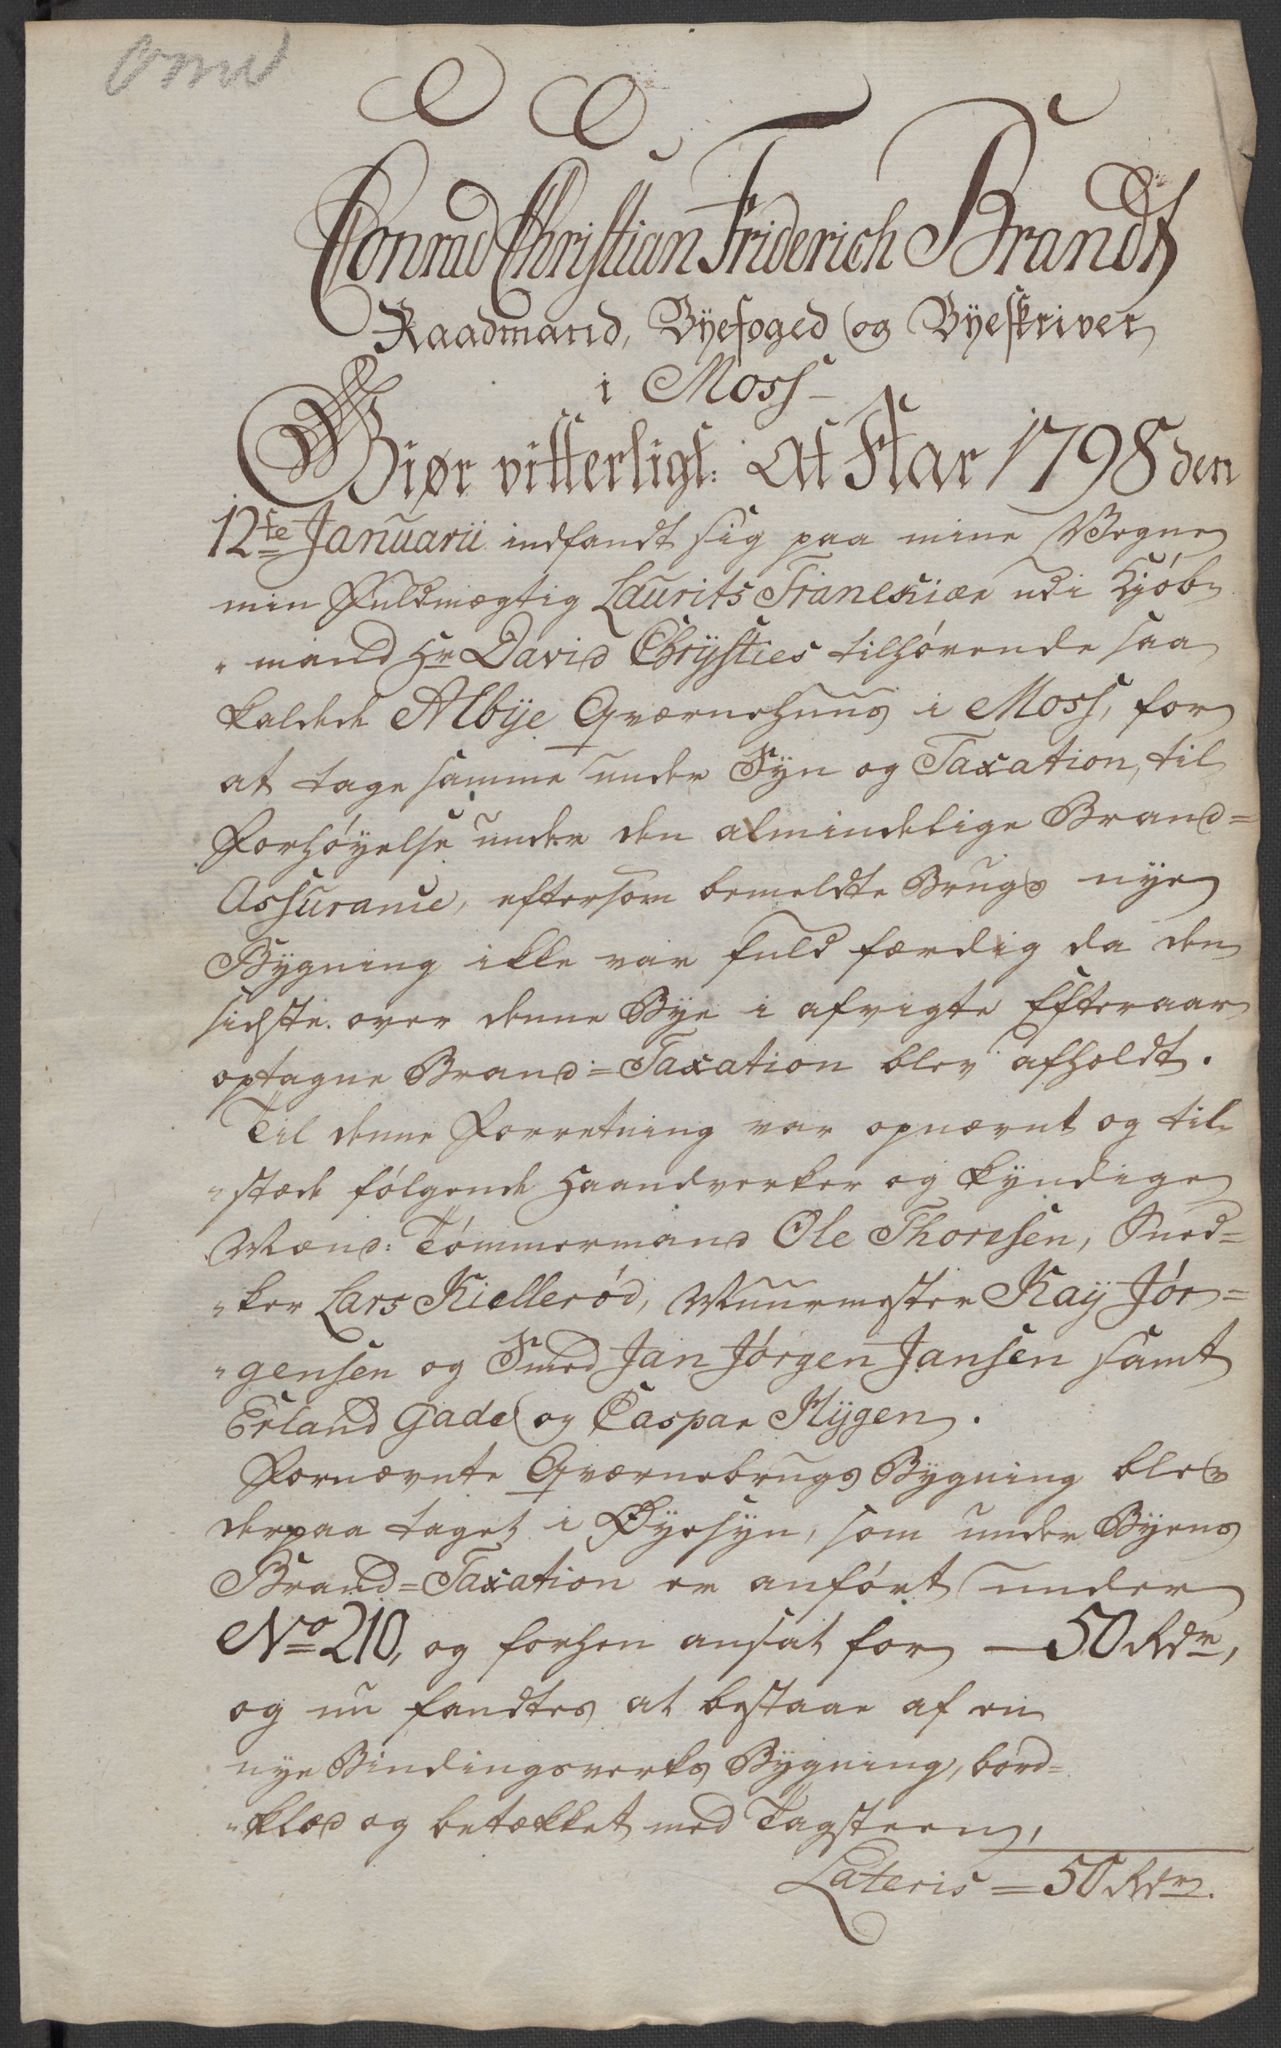 Omd
Conrad Christian Friderich Brandt
Raadmand, Byefoged og Byeskriver
i Moss
Giør vitterligt: At Aar 1798 den
12te Januarii indfandt sig paa mine Vegne
min Fuldmægtig Laurits udi Kjøb-
"mand Hr David Chrysties tilhørende saa
kaldede Albÿe Qværnehuus i Moss, for
at tage samme under Syn og Taxation, til
Forhøyelse under den almindelige Brand=
Assurance, eftersom bemeldte Brugs nye
Bygning ikke var fuld færdig da den
sidste over denne Bye i afvigte Efteraar
optagne Brand=Taxation blev afholdt.
Til denne Forretning var opnævnt og til-
"stæde følgende Haandverker og kyndige
Mænd: Tømmermand Ole Thoresen, Sned=
"ker Lars Kiellerød, Muurmester Kaÿ Jør=
"gensen og Smed Jan Jørgen Jansen samt
Erland Gade og Caspar Hÿgen.
Fornævnte Qværnebrugs Bygning blev
derpaa taget i Øyesyn, som under Byens
Brand=Taxation er anført under
No 210, og forhen ansat for — 50 Rdr,
og nu fandtes at bestaae af en
nye Bindingsverks Bygning, bord=
"klæd og betækket med Tagsteen,
Lateris = 50 Rdr.